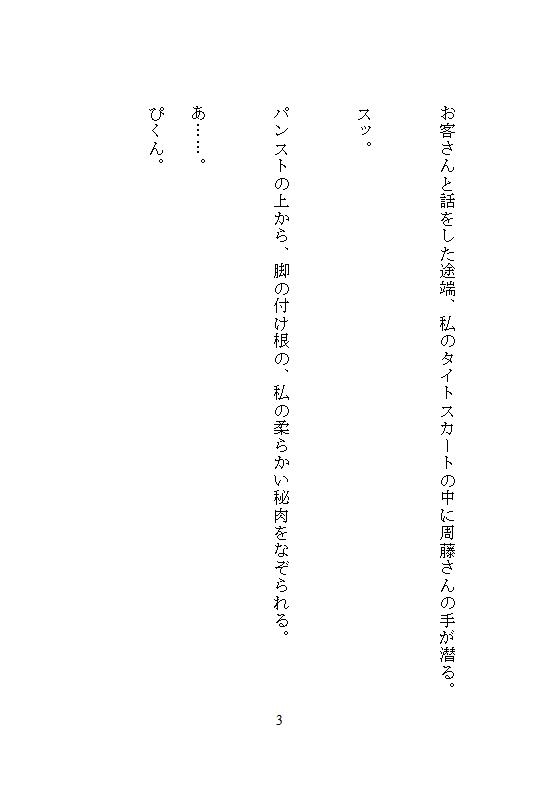 お客さんと話をした途端、私のタイトスカートの中に周藤さんの手が潜る。
スッ。
パンストの上から、脚の付け根の、私の柔らかい秘肉をなぞられる。
あ……。
ぴくん。
3